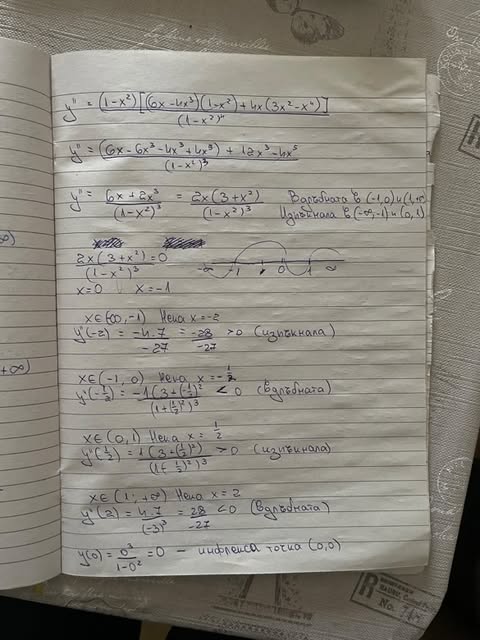 y'' = (1-x²)[(6x-4x³)(1-x²)+4x(3x²-x⁴)] / (1-x²)⁴
y'' = (6x-6x³-4x³+4x⁵)+12x³-4x⁵ / (1-x²)³
y'' = 6x+2x³ / (1-x²)³ = 2x(3+x²) / (1-x²)³ Вдлъбната в (-1,0) и (1,+∞)
Изпъкнала в (-∞,-1) и (0,1)
2x(3+x²) / (1-x²)³ = 0 -∞ -1 0 1 ∞
x=0 x=-1
x∈(∞,-1) Нека x=-2
y''(-2) = -4.7 / -27 = -28 / -27 >0 (изпъкнала)
x∈(-1,0) Нека x=-1/2
y''(-1/2) = -1(3+(-1/2)² / (1+(1/2)²)³ <0 (вдлъбната)
x∈(0,1) Нека x=1/2
y''(1/2) = 1(3+(1/2)²) / (1(-1/2)²)³ >0 (изпъкнала)
x∈(1;+∞) Нека x=2
y''(2) = 4.7 / (-3)³ = 28 / -27 <0 (вдлъбната)
y(0) = 0³ / 1-0² = 0 – инфлексна точка (0,0)
R
No.